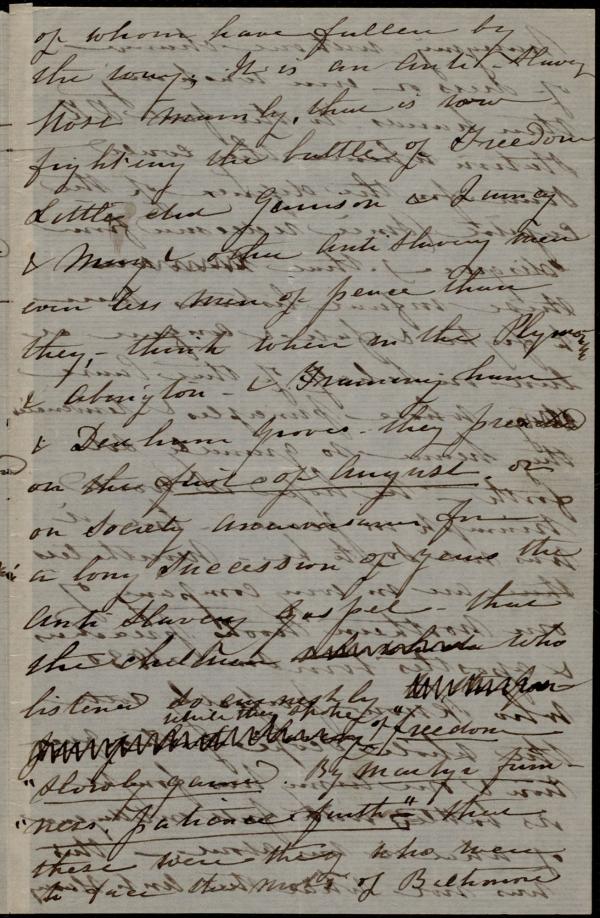 of whom have fallen by
the way. It is an Anti-Slavery
Host mainly, that is now
fighting the battle of Freedom
Little did Garrison & Quincy
& Many other Anti Slavery men
even less men of peace than
they, - think when in the Plymouth
& Abington - & Framingham
& Dedham Groves - they preached
on the first of August, or
on Society anniversaries for
a long succession of years the
Anti Slavery Gospel - that
the children who
listened so earnestly
while they spoke of "freedom
"slowly gained. By Martyr firm-
"ness, patience faith" - that
these were they who were
to face the mobs of Baltimore